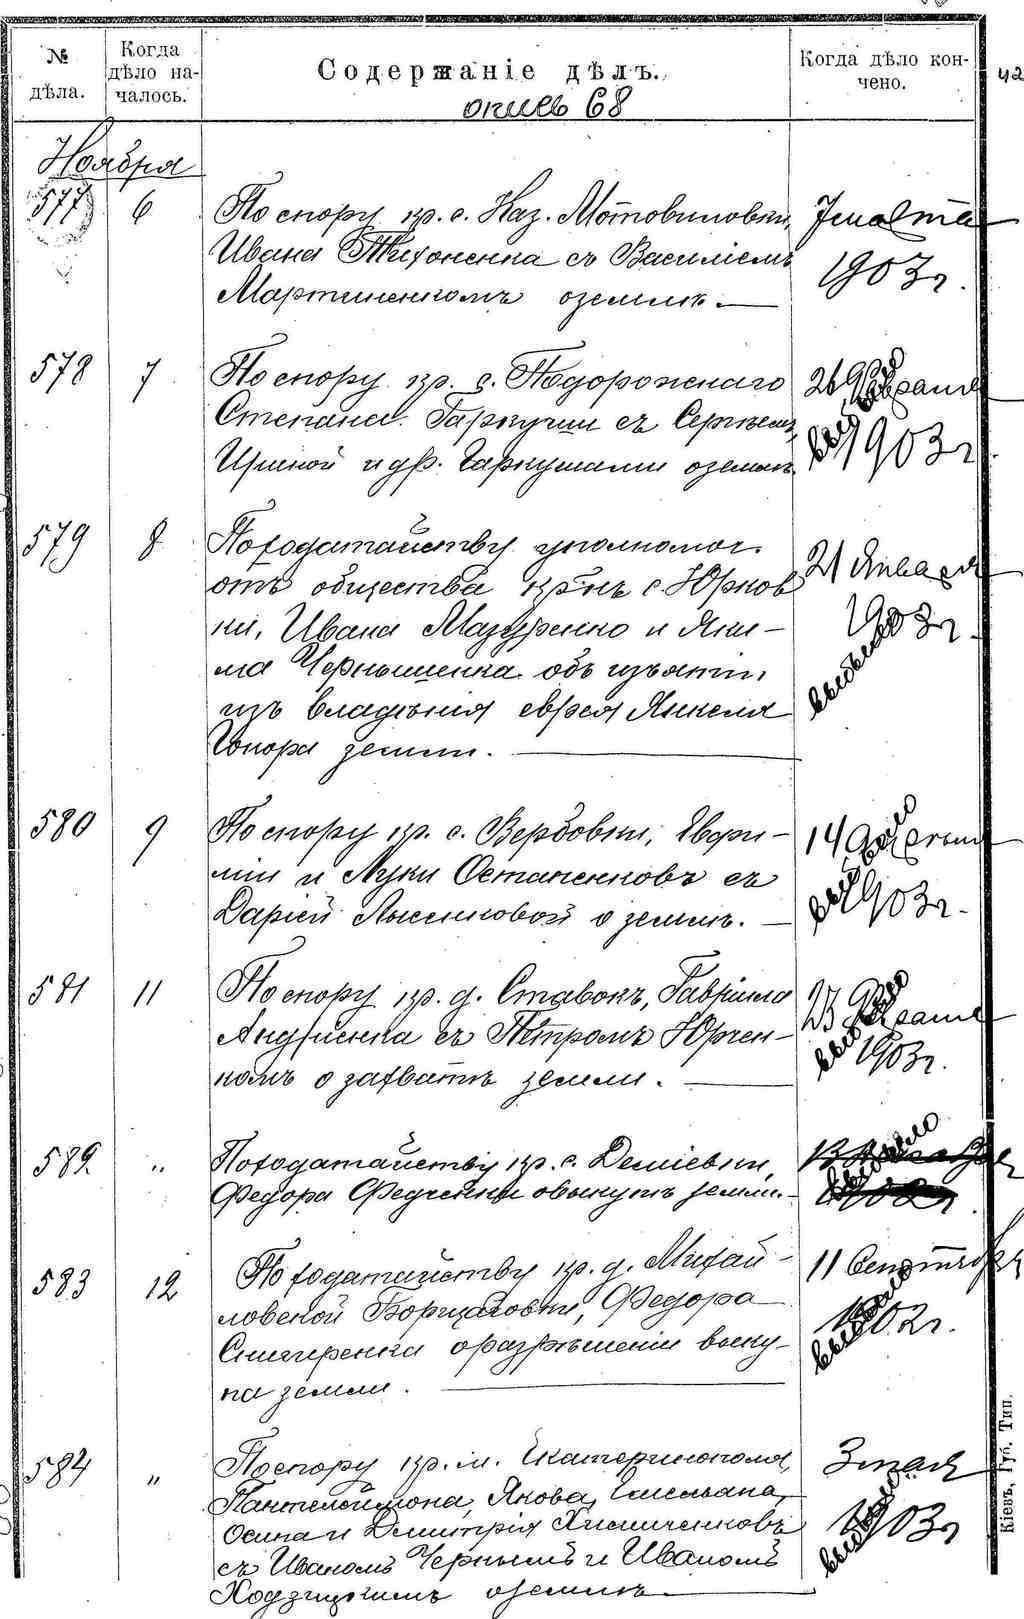 № дѣла.
Когда дѣло на-
чалось.
Содержаніе дѣлъ.
Когда дѣло кон-
чено.
42
опись 68
Ноября
577 6 По спору кр. с. Наз. Мотовиловки, 7 марта
Ивана Тихоненка съ Василіемъ 1903 г.
Мартиненкомъ о землѣ.
578 7 По спору кр. д. Подорожнаго 26 февраля
Степана Гаркуши съ Сергѣемъ, 1903 г.
Ириной и др. Гаркушами о землѣ. выбыло
579 8 По ходатайству уполномоч. 21 Января
отъ общества кр-нъ с. Юрков 1903 г.
ки, Ивана Мазуренко и Яки- выбыло
ма Чернышенка объ изъятіи
изъ владѣнія еврея Янкеля
Гонора земли.
580 9 По спору кр. с. Вербовки, Евфи- 14
міи и Луки Остапенковъ съ 1903 г.
Даріей Лысенковой о землѣ. выбыло
581 11 По спору кр. д. Ставокъ, Гавріила 23 февраля
Андріенка съ Петромъ Юрчен- 1903 г.
комъ о захватѣ земли. выбыло
582 „ По ходатайству кр. с. Деміевки, выбыло
Федора Федченки о выкупѣ земли. 1902 г.
583 12 По ходатайству кр. д. Михай- 11 Сентября
ловской Борщаговки, Федора 1902 г.
Снигиренка о разрѣшеніи выку- выбыло
па земли.
584 „ По спору кр. м. Екатеринополя, 3 мая
Пантелеймона, Якова, Емельяна, 1903 г.
Осипа и Дмитрія Хименченковъ выбыло
съ Иваномъ Чернымъ и Иваномъ
Ходзицкимъ о землѣ.
Кіевъ, Губ. Тип.